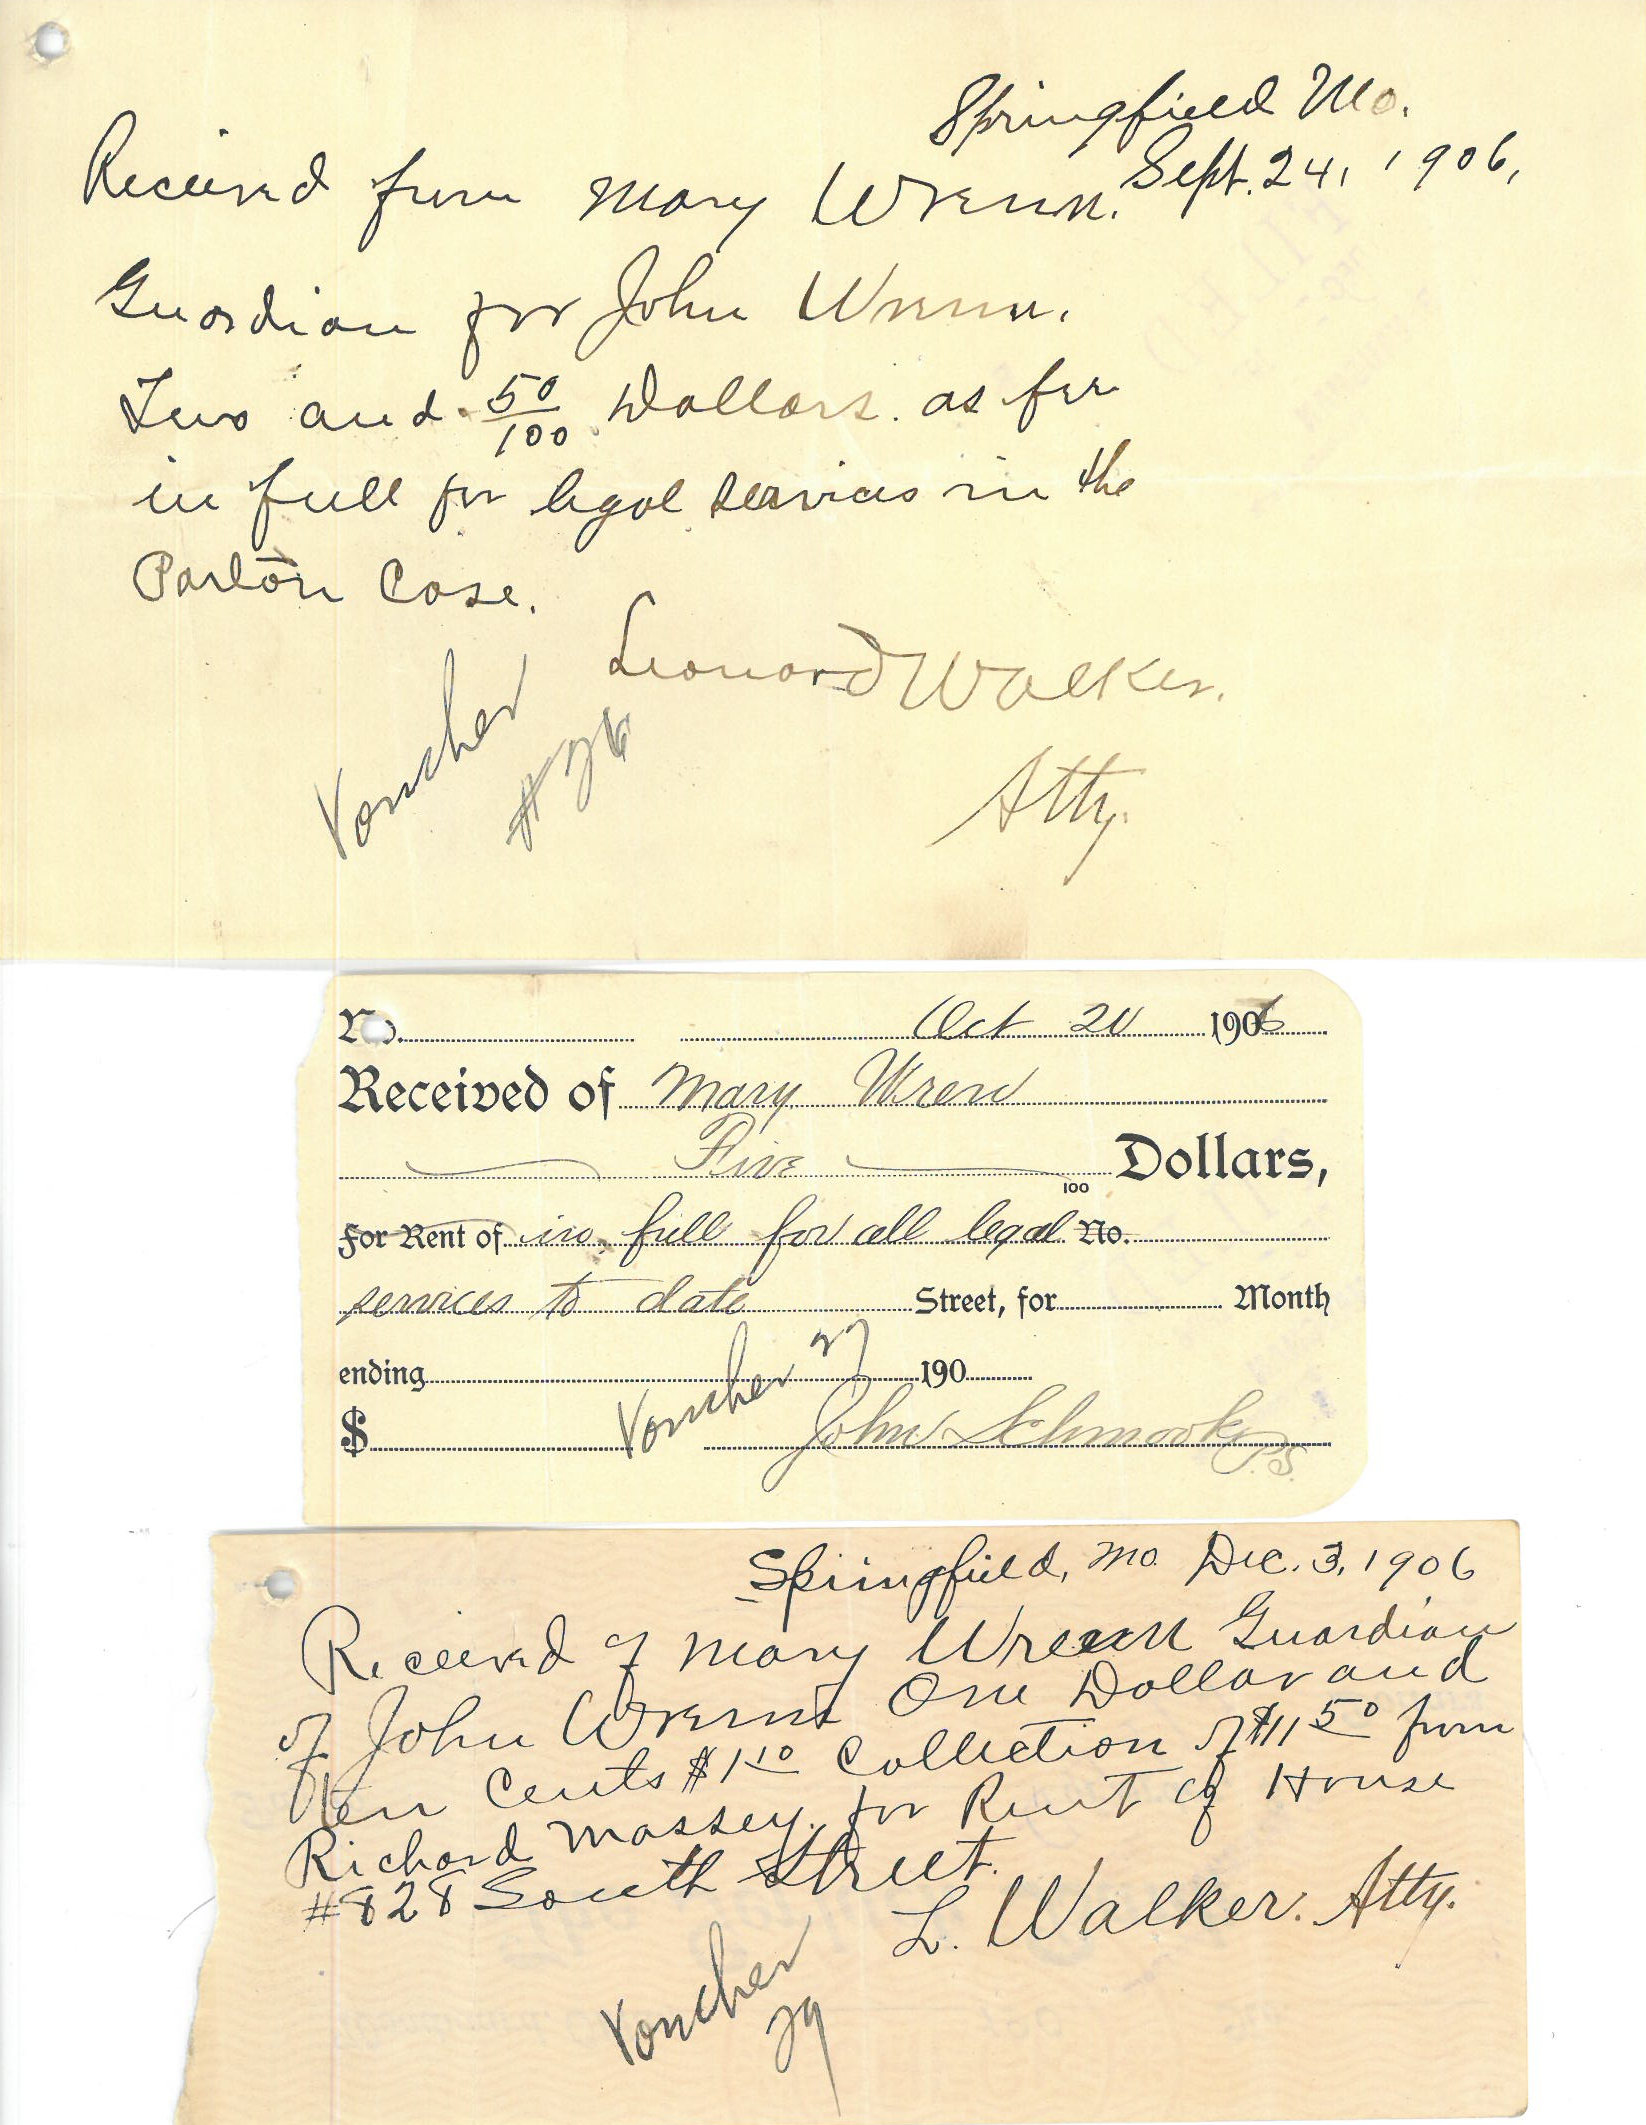 Springfield Mo.
Sept. 24, 1906,
Received from Mary Wrenn.
Guardian for John Wrenn.
Two and 50/100 Dollars. as fee
in full for legal services in the
Parlon Case.
Leonard Walker.
Atty.
Voucher
#26
No. Oct 20 1906
Received of Mary Wren
Five 100 Dollars,
For Rent of in full for all legal No.
services to date Street, for Month
ending 190
Voucher 27
$ John Schmook P.S.
Springfield, Mo. Dec. 3, 1906
Received of Mary Wrenn Guardian
of John Wrenn One Dollar and
ten Cents $1 10 Collection of $11 50 from
Richard Massey, for Rent of House
#828 South Street.
L. Walker. Atty.
Voucher
29